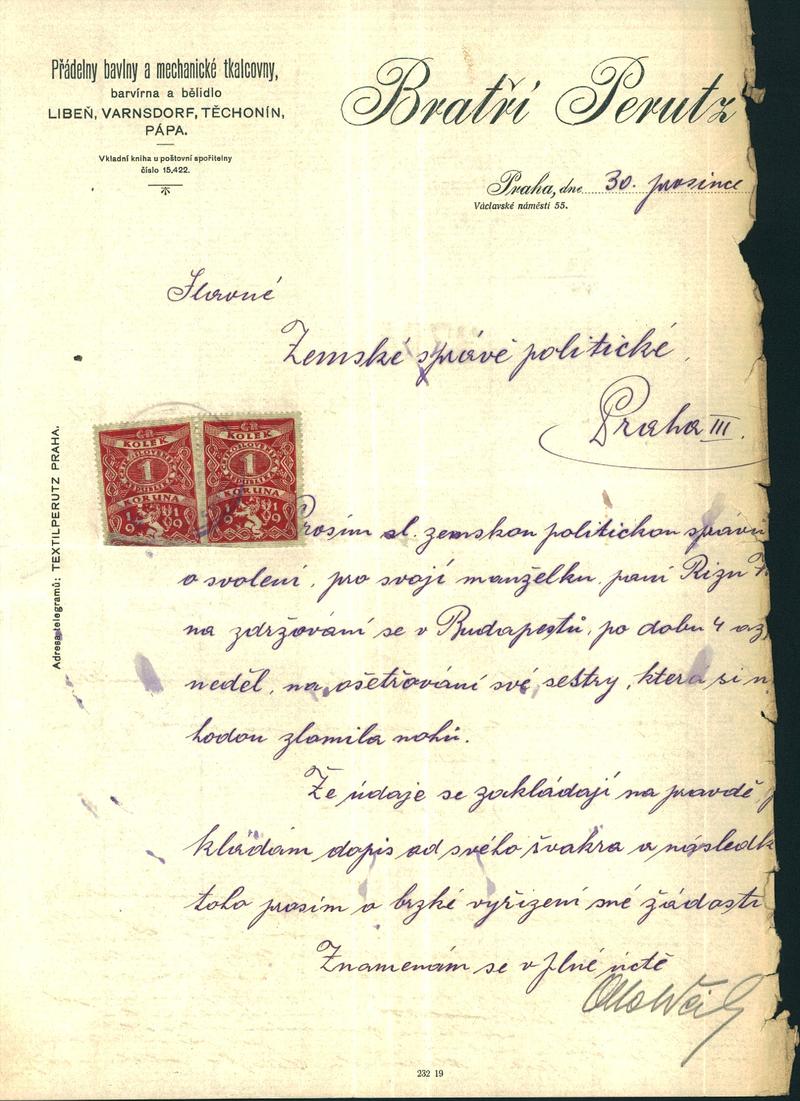 Přádelny bavlny a mechanické tkalcovny,
barvírna a bělidlo
LIBEŇ, VARNSDORF, TĚCHONÍN,
PÁPA.
Vkladní kniha u poštovní spořitelny
číslo 15,422.
Bratří Perutz
Praha, dne 30. prosince
Václavské náměstí 55.
Slavné
Zemské správě politické
Praha III.
Adresa telegramů: TEXTILPERUTZ PRAHA.
KOLEK
1
KORUNA
1919
KOLEK
1
KORUNA
1919
Prosím sl. zemskou politickou správu
o svolení, pro svojí manželku, paní Rizu
na zdržování se v Budapestů, po dobu 4 až
neděl, na ošetřování své sestry, která si n
hodou zlamila nohu.
Že údaje se zakládají na pravdě
kládám dopis od svého švakra a následk
toho prosím o brzké vyřízení mé žádosti
Znamenám se v plné úctě
Otto
232 19